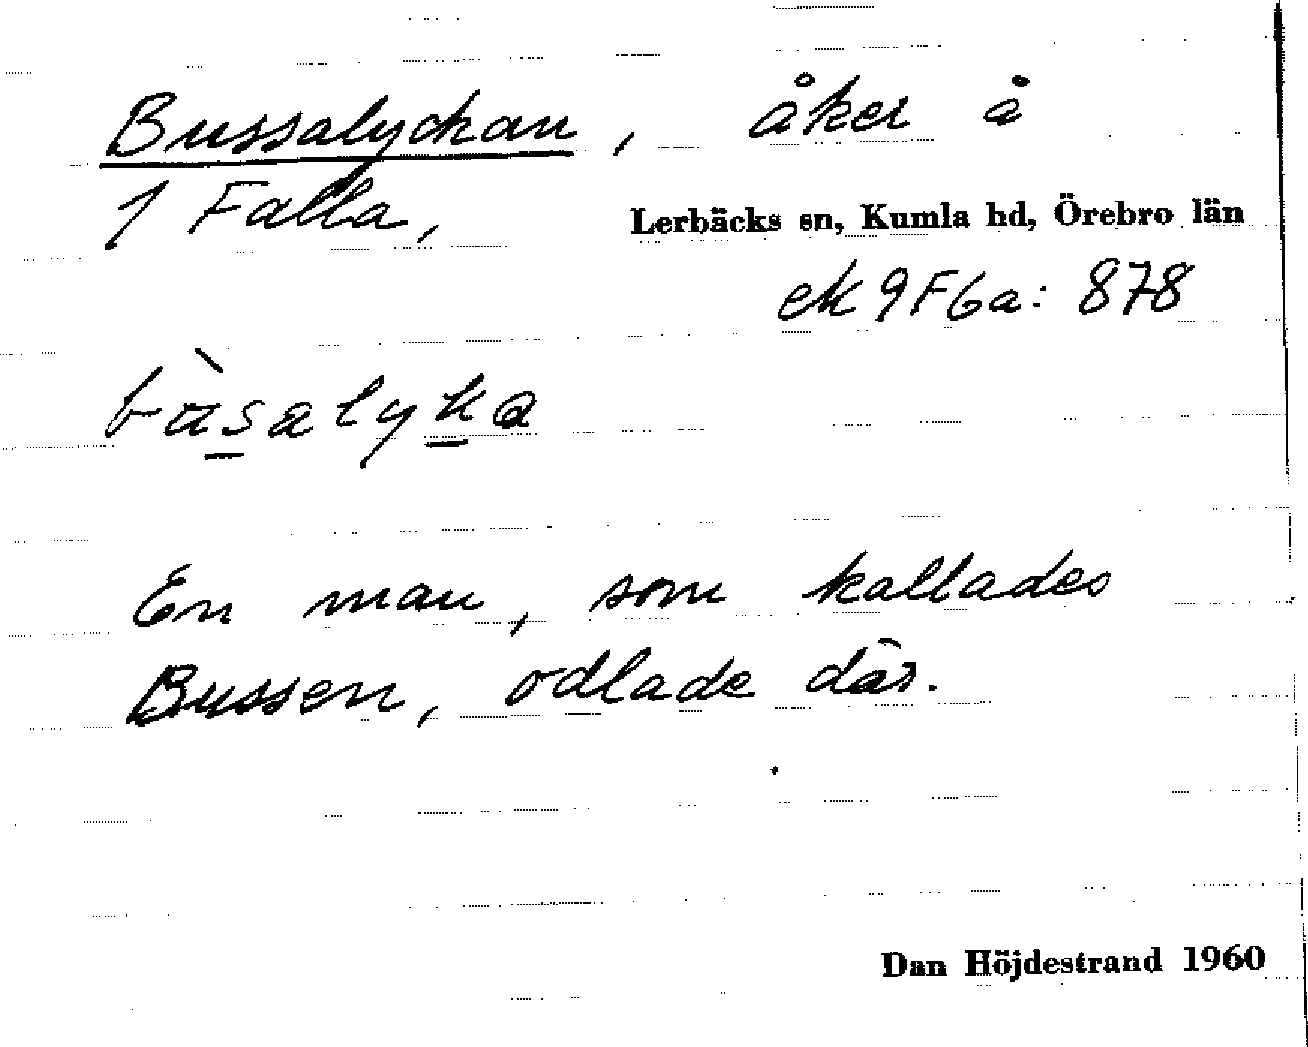 Bussalyckan, åker å
1 Falla,
Lerbäcks sn, Kumla hd, Örebro län
ek 9F6a: 878
bùsalyka
En man, som kallades
Bussen, odlade där.
Dan Höjdestrand 1960